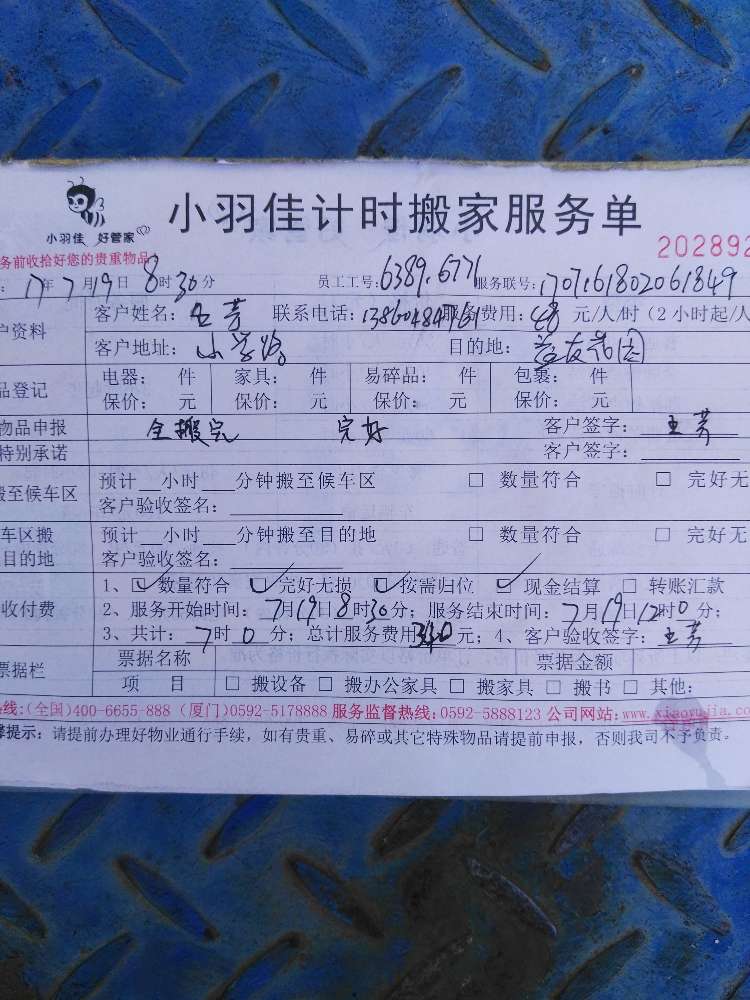 小羽佳 好管家
小羽佳计时搬家服务单
202892
务前收拾好您的贵重物品
:17年7月19日8时30分 员工工号:6389.6771 服务联号:1707161802061849
户资料 客户姓名:王芳 联系电话:13860484761 服务费用: 元/人/时(2小时起/人
客户地址: 小学路 目的地: 益友花园
品登记 电器: 件 家具: 件 易碎品: 件 包裹: 件
保价: 元 保价: 元 保价: 元 保价: 元
物品申报 全搬完 完好 客户签字:王芳
特别承诺 客户签字:
搬至候车区 预计__小时___分钟搬至候车区 □ 数量符合 □ 完好无
客户验收签名:
车区搬 预计__小时___分钟搬至目的地 □ 数量符合 □ 完好无
目的地 客户验收签名:
1、☑数量符合 ☑完好无损 ☑按需归位 ☑现金结算 □ 转账汇款
收付费 2、服务开始时间:7月19日8时30分;服务结束时间:7月19日12时0分;
3、共计:7时0分;总计服务费用元;4、客户验收签字:王芳
票据栏 票据名称 票据金额
项 目 □ 搬设备 □ 搬办公家具 □ 搬家具 □ 搬书 □ 其他:
线:(全国)400-6655-888 (厦门)0592-5178888 服务监督热线:0592-5888123 公司网站:www.xiaoyujia.c
馨提示:请提前办理好物业通行手续,如有贵重、易碎或其它特殊物品请提前申报,否则我司不予负责。